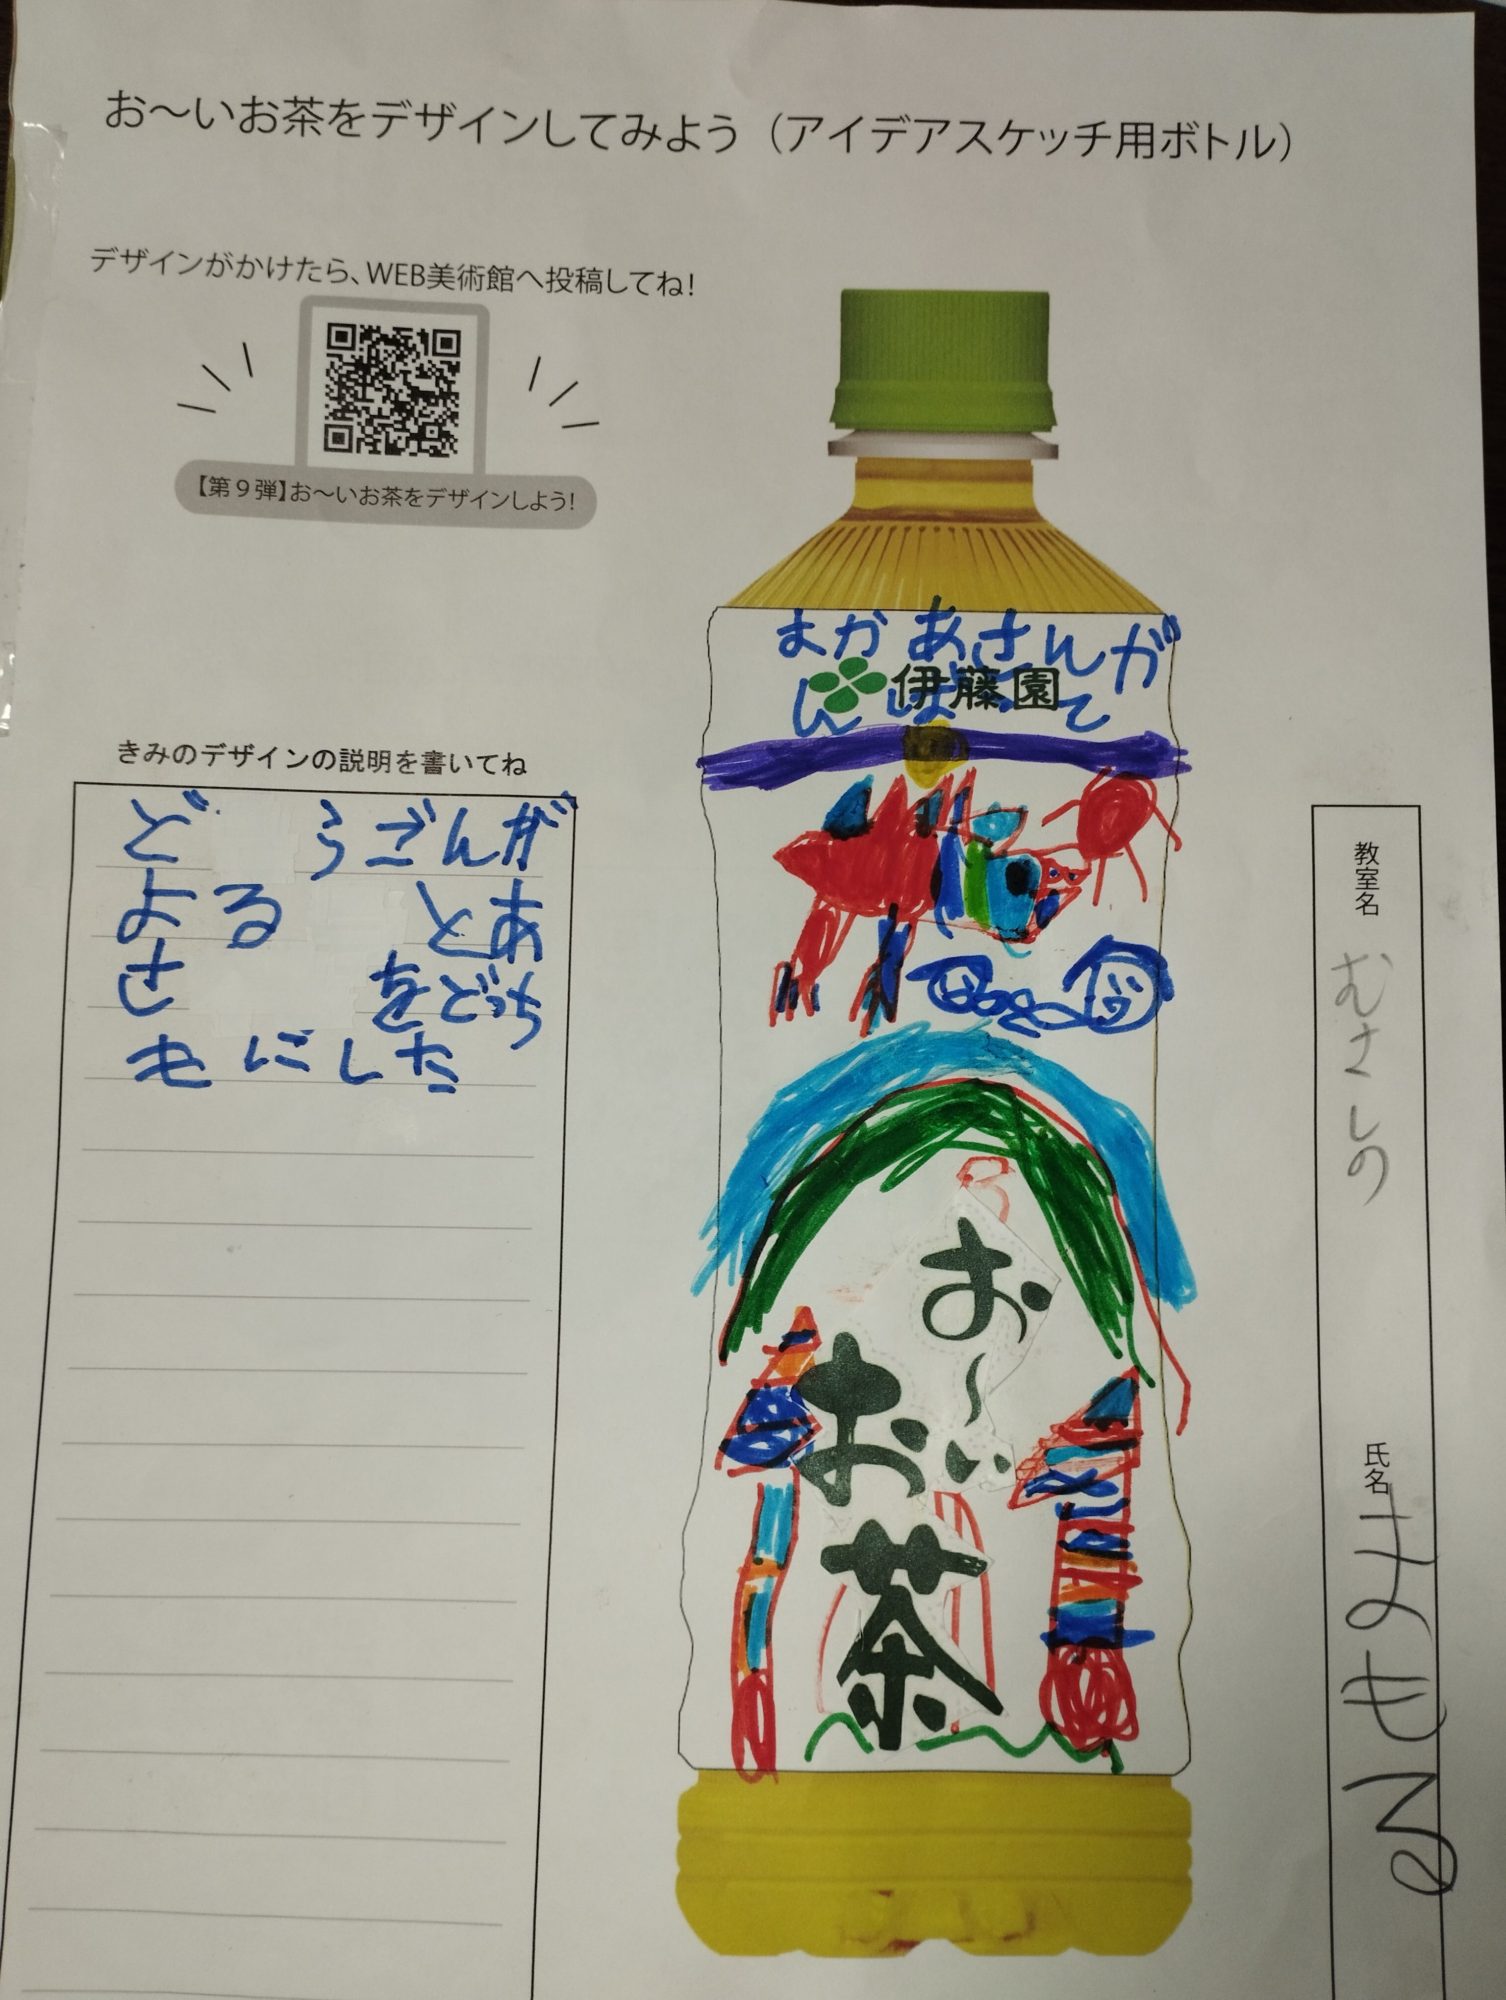 お〜いお茶をデザインしてみよう（アイデアスケッチ用ボトル）
デザインがかけたら、WEB美術館へ投稿してね！
【第9弾】お〜いお茶をデザインしよう！
きみのデザインの説明を書いてね
ど うごんが
よる とあ
さ をどっち
もにした
あさんが
伊藤園
お〜い
お茶
教室名
むさしの
氏名